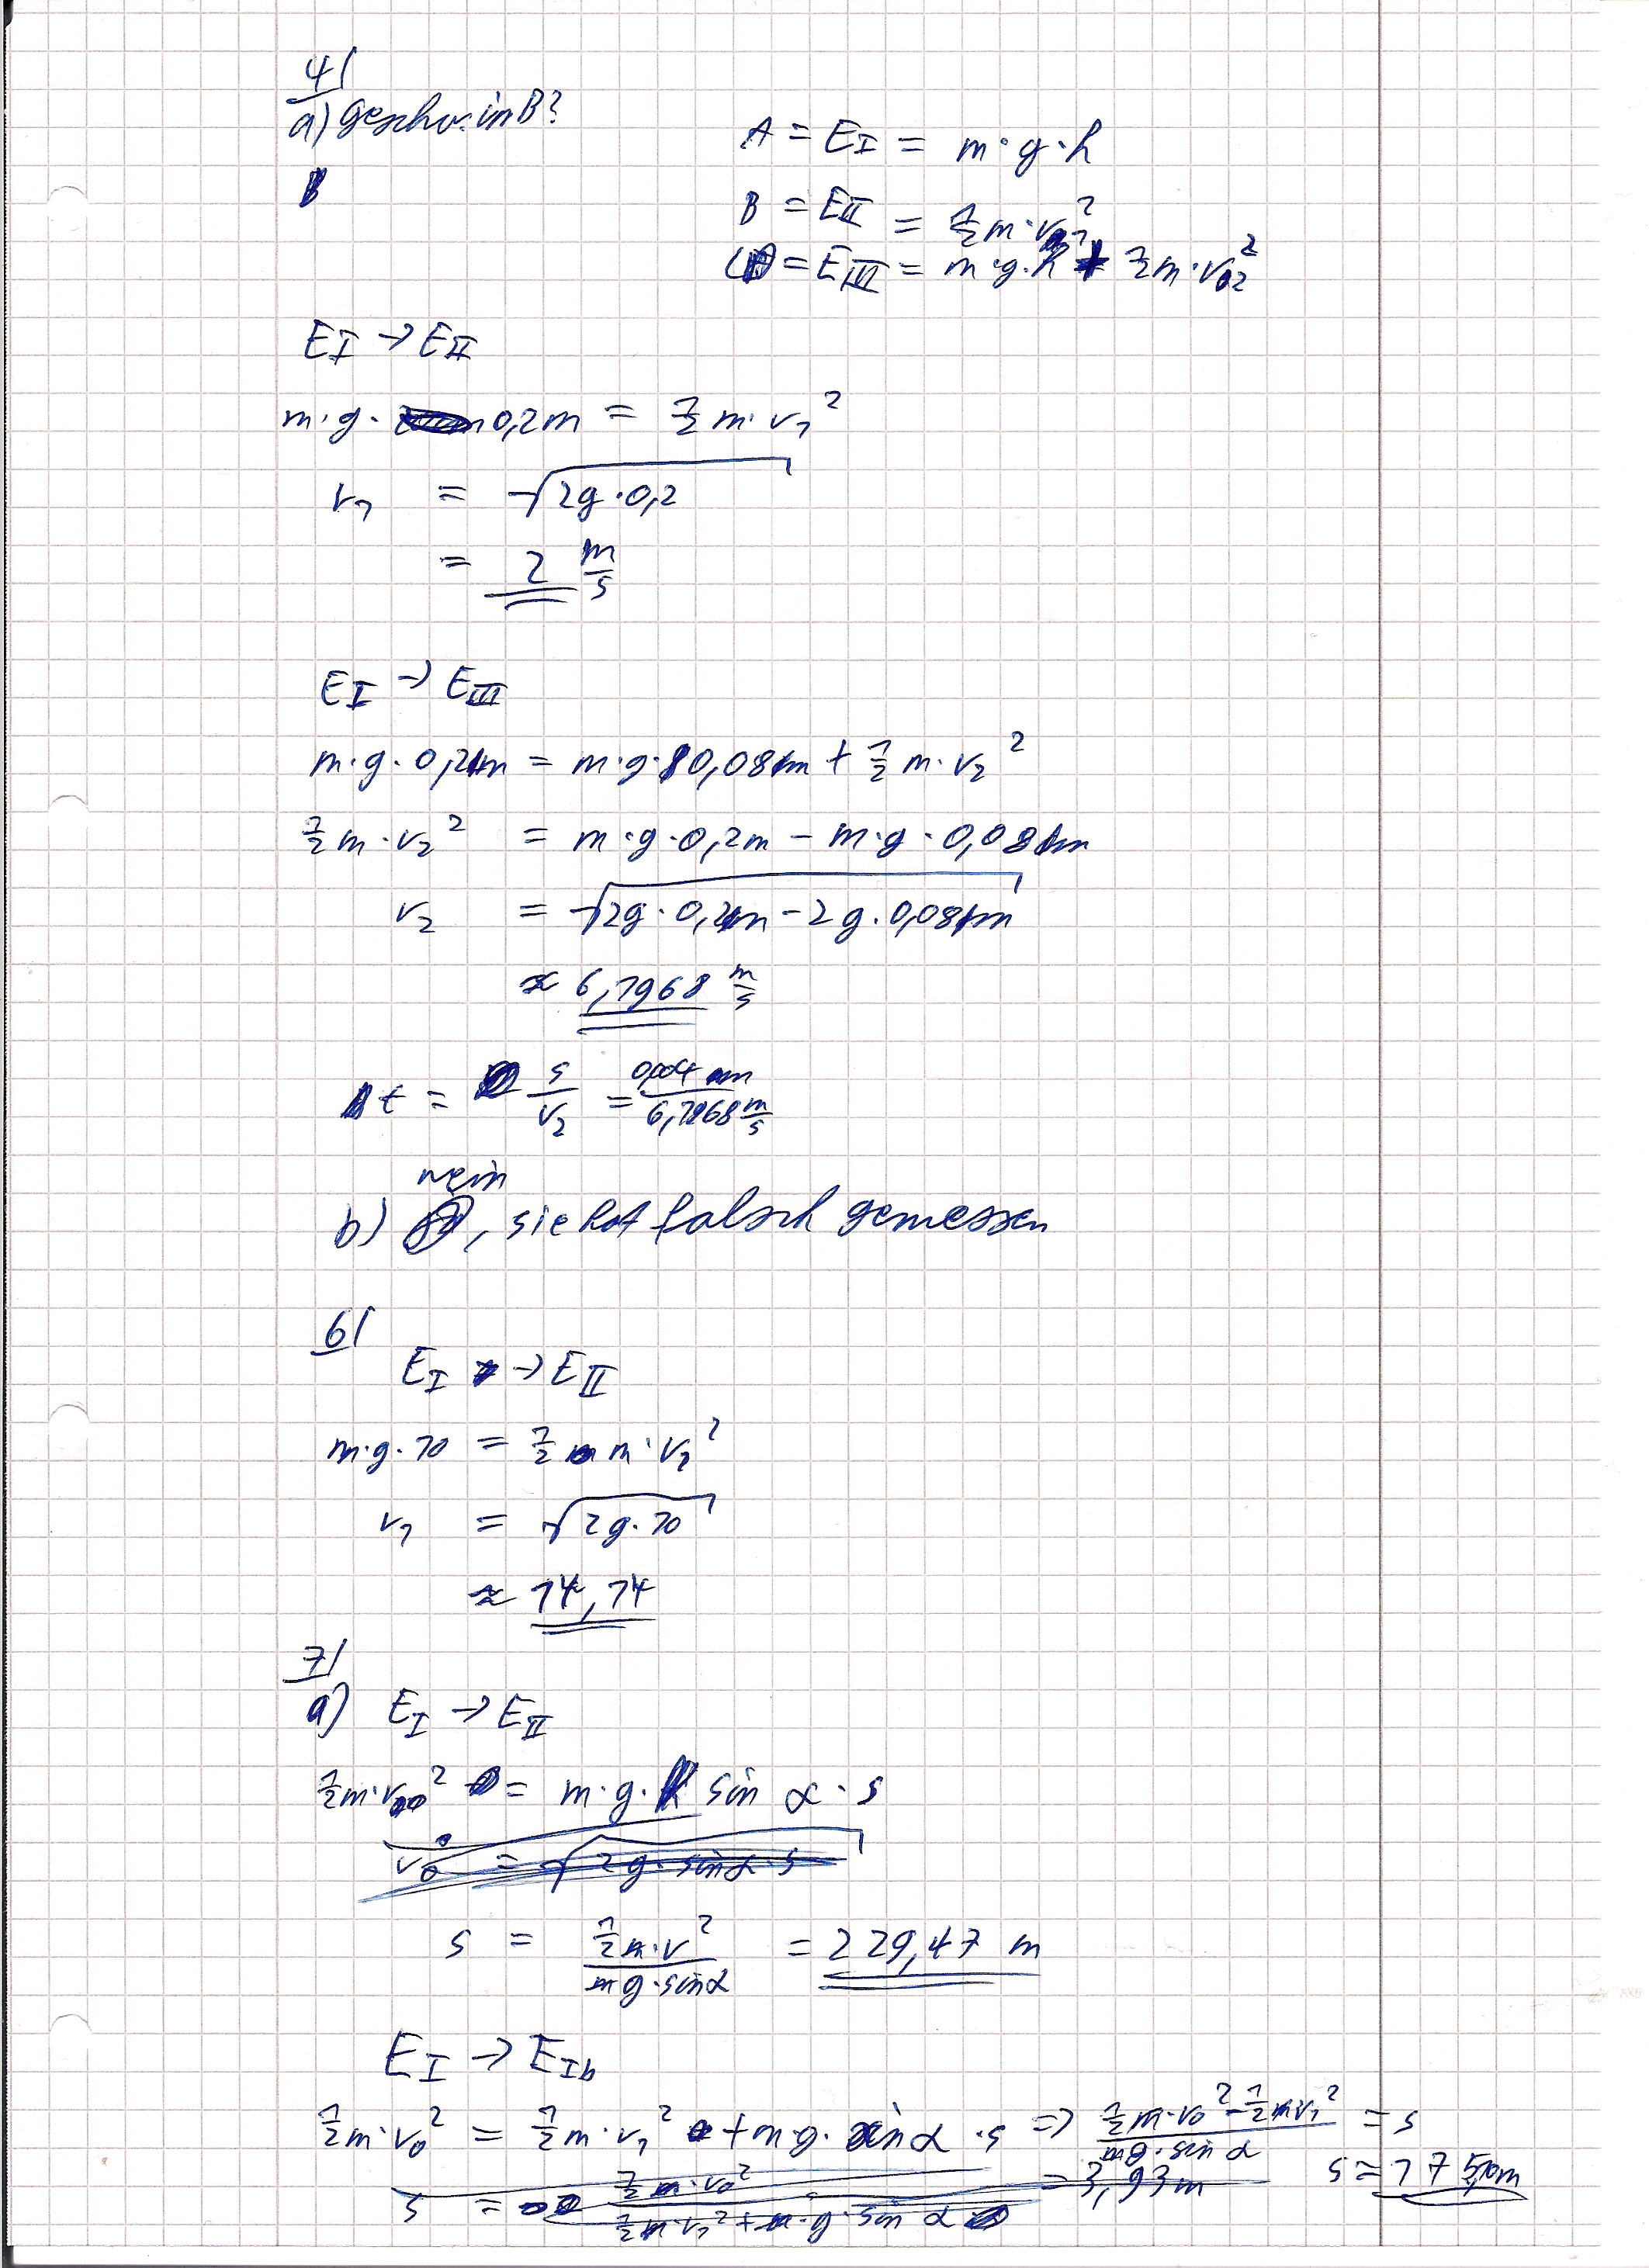 4/
a) geschw. in B?
A = E_I = m·g·h
B = E_II = ½m·v₁²
C = E_III = m·g·h + ½m·v₂²
E_I → E_II
m·g·0,2m = ½m·v₁²
v₁ = √(2g·0,2)
= 2 m/s
E_I → E_III
m·g·0,2m = m·g·0,08m + ½m·v₂²
½m·v₂² = m·g·0,2m − m·g·0,08m
v₂ = √(2g·0,2m − 2g·0,08m)
≈ 6,1968 m/s
t = s/v₂ = 0,004m / 6,1968 m/s
nein
b) , sie hat falsch gemessen
6/
E_I → E_II
m·g·10 = ½m·v₁²
v₁ = √(2g·10)
≈ 14,14
7/
a) E_I → E_II
½m·v₀² = m·g·sin α·s
v₀ = √(2g·sinα·s)
s = ½m·v² / mg·sinα = 229,47 m
E_I → E_Ib
½m·v₀² = ½m·v₁² + m·g·sin α·s => (½m·v₀² − ½m·v₁²) / mg·sin α = s
s = ½m·v₀² / (½m·v₁² + m·g·sin α) = 3,93m
s = 175,10m